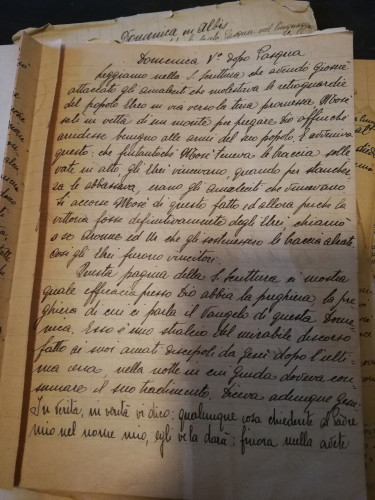 Domenica in Albis
Domenica V° dopo Pasqua
Leggiamo nella S. Scrittura che avendo Giosuè
attaccato gli amaleciti che molestava le retroguardie
del popolo Ebreo in via verso la terra promessa Mosè
salì in vetta di un monte per pregare Dio affinché
arridesse benigno alle armi del suo popolo. E avveniva
questo: che fintantoché Mosè teneva le braccia solle
vate in alto, gli Ebrei vincevano, quando per stanchez
za le abbassava, erano gli amaleciti che vincevano
Si accorse Mosè di questo fatto ed allora perché la
vittoria fosse definitivamente degli Ebrei chiamò
a se Aronne ed Ur che gli sostenessero le braccia alzate
così gli Ebrei furono vincitori.
Questa pagina della S. Scrittura ci mostra
quale efficacia presso Dio abbia la preghiera, la pre
ghiera di cui ci parla il Vangelo di questa Dome
nica. Esso è uno stralcio del mirabile discorso
fatto ai suoi amati discepoli da Gesù dopo l'ulti
ma cena, nella notte in cui Giuda doveva con
sumare il suo tradimento. Diceva adunque Gesù:
In verità, in verità vi dico: qualunque cosa chiederete al Padre
mio nel nome mio, egli ve la darà: finora nulla avete